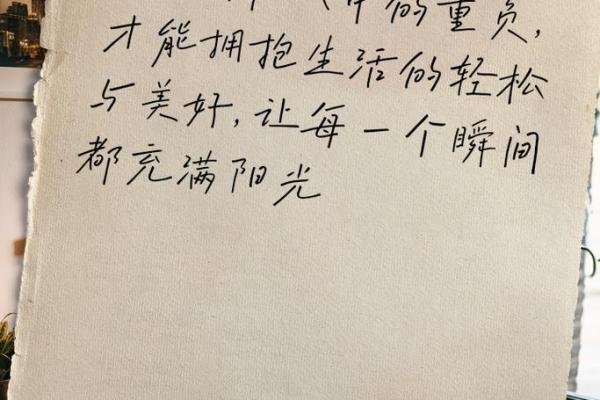 中的重负,
才能拥抱生活的轻松
与美好,让每一个瞬间
都充满阳光